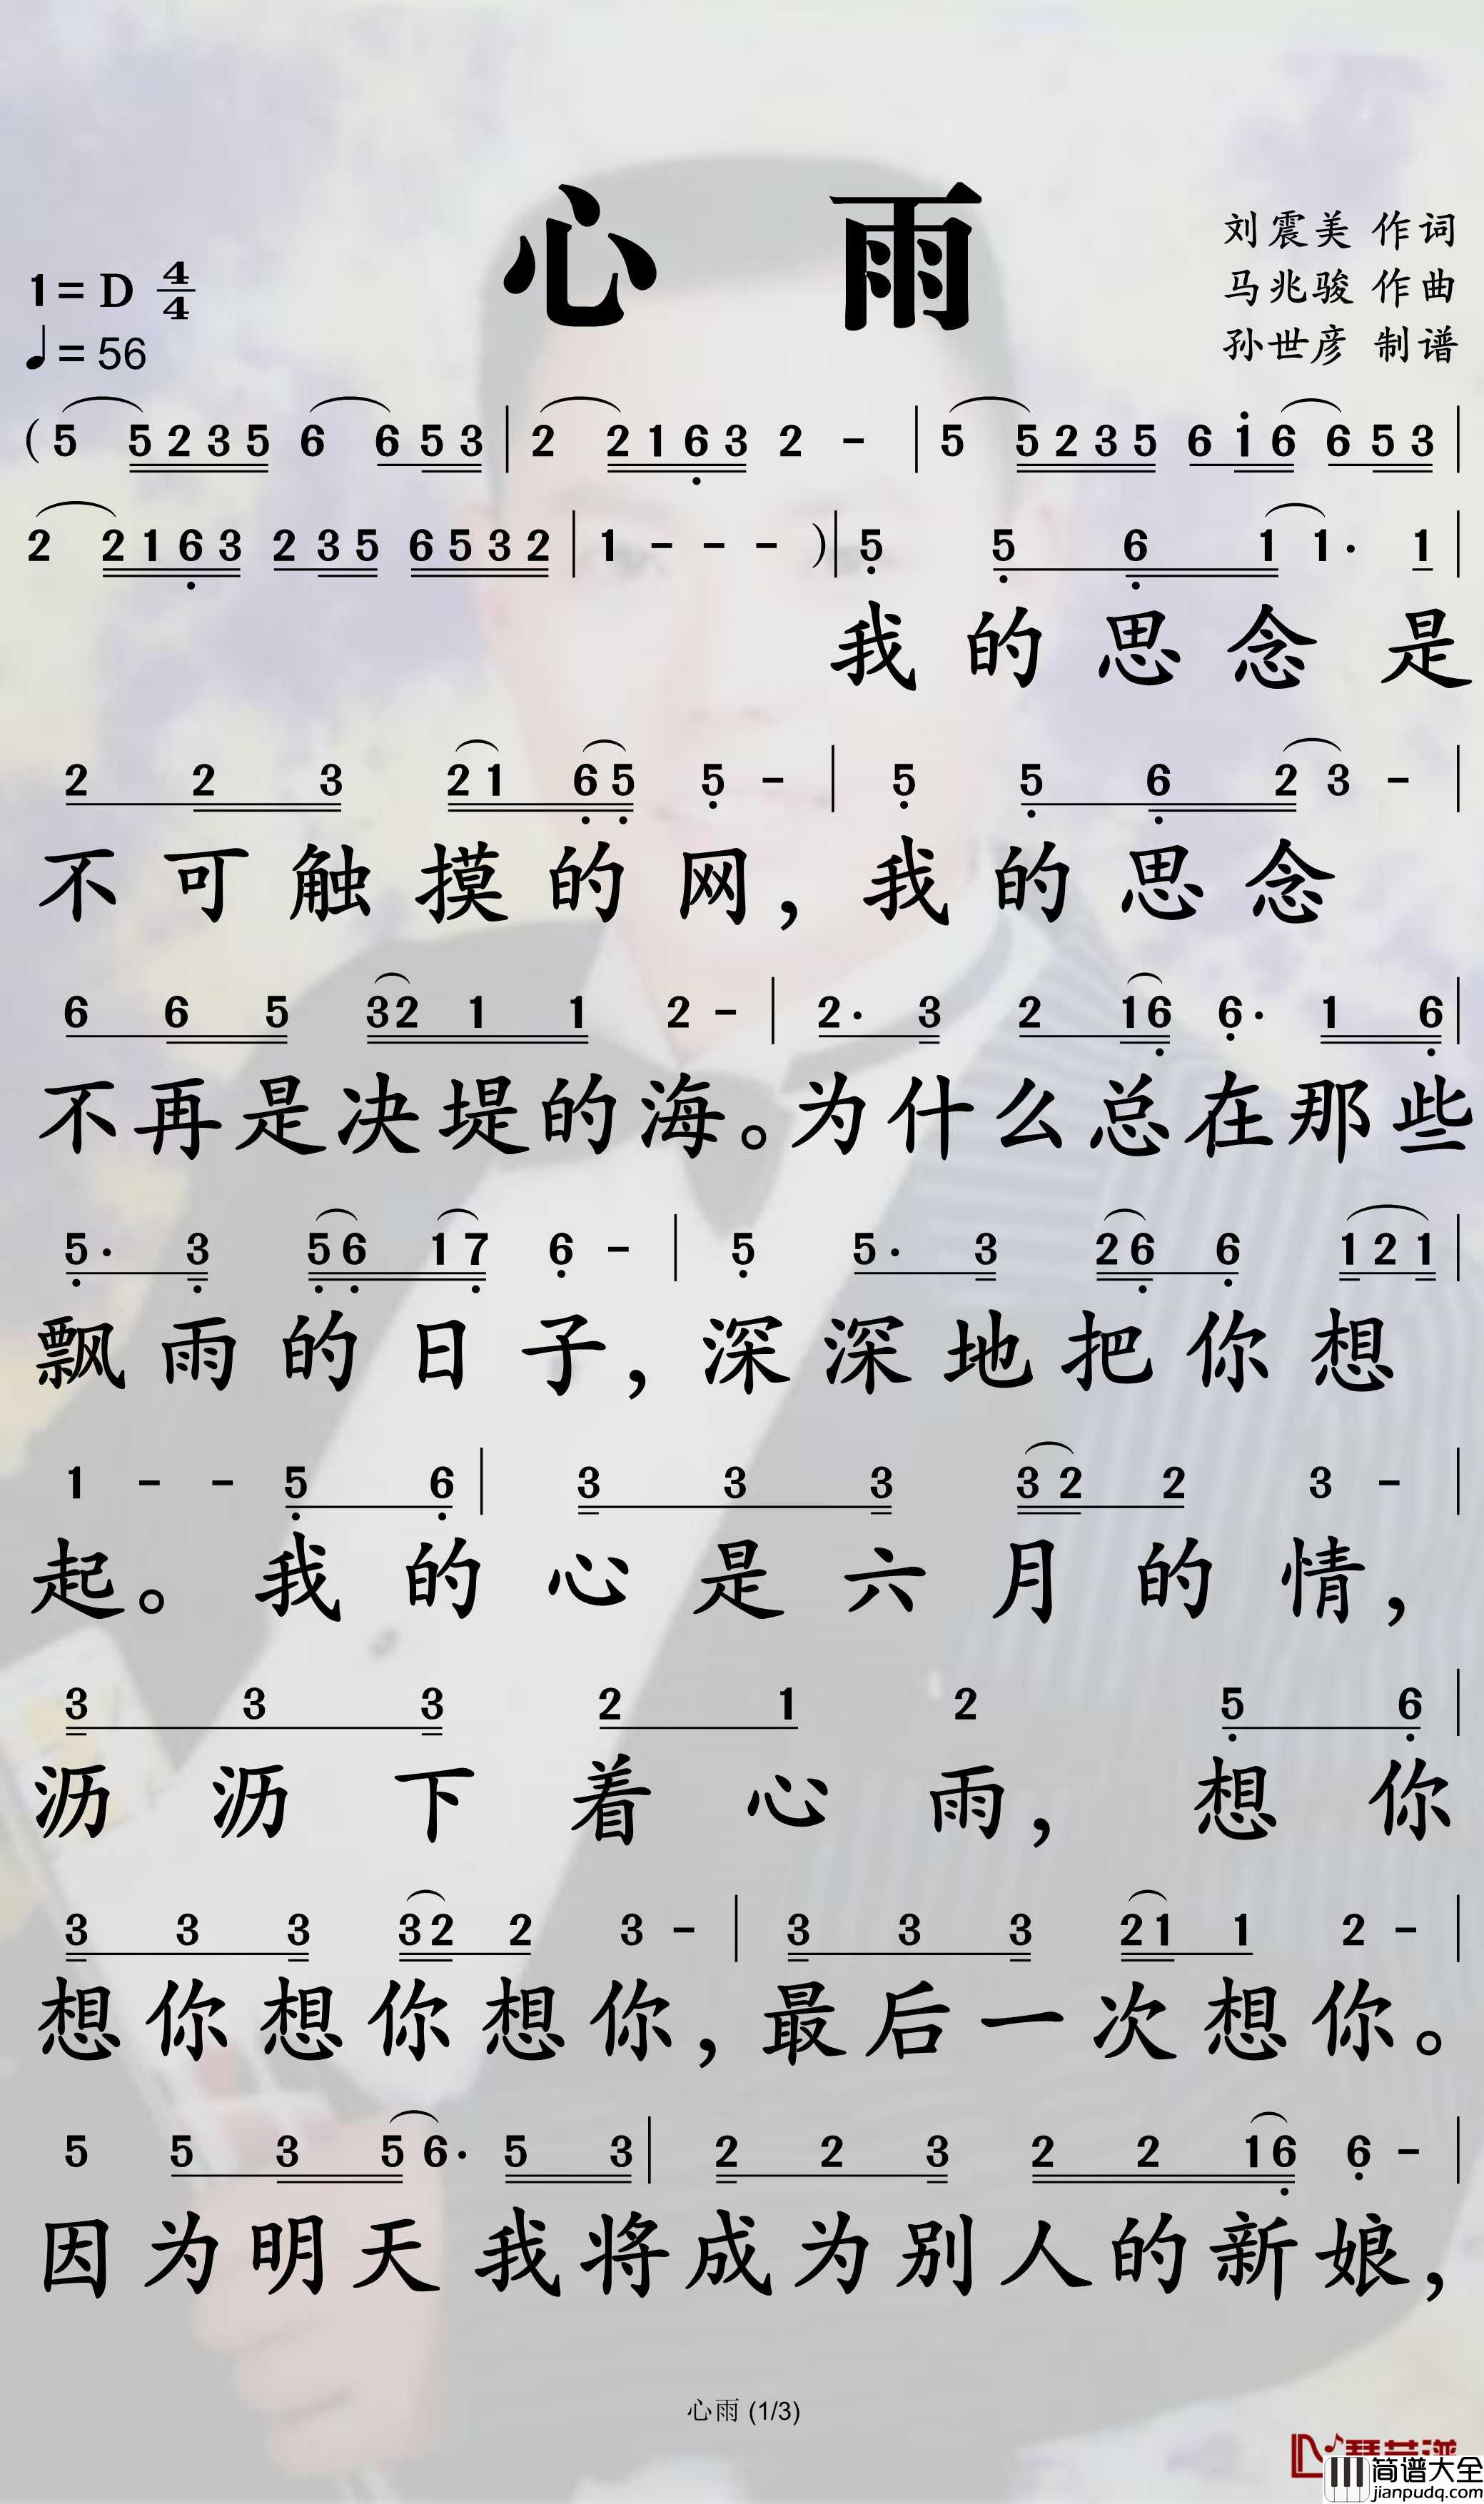 心 雨
刘震美 作词
马兆骏 作曲
孙世彦 制谱
1= D 4/4
♩= 56
( 5 5 2 3 5 6 6 5 3 | 2 2 1 6 3 2 - | 5 5 2 3 5 6 1 6 6 5 3 |
2 2 1 6 3 2 3 5 6 5 3 2 | 1 - - - ) | 5 5 6 1 1. 1 |
我 的 思 念 是
2 2 3 2 1 6 5 5 - | 5 5 6 2 3 - |
不 可 触 摸 的 网, 我 的 思 念
6 6 5 3 2 1 1 2 - | 2. 3 2 1 6 6. 1 6 |
不 再 是 决 堤 的 海。为 什 么 总 在 那 些
5. 3 5 6 1 7 6 - | 5 5. 3 2 6 6 1 2 1 |
飘 雨 的 日 子, 深 深 地 把 你 想
1 - - 5 6 | 3 3 3 3 2 2 3 - |
起。 我 的 心 是 六 月 的 情,
3 3 3 2 1 2 5 6 |
沥 沥 下 着 心 雨, 想 你
3 3 3 3 2 2 3 - | 3 3 3 2 1 1 2 - |
想 你 想 你 想 你, 最 后 一 次 想 你。
5 5 3 5 6. 5 3 | 2 2 3 2 2 1 6 6 - |
因 为 明 天 我 将 成 为 别 人 的 新 娘,
心雨 (1/3)
简谱大全
jianpudq.com